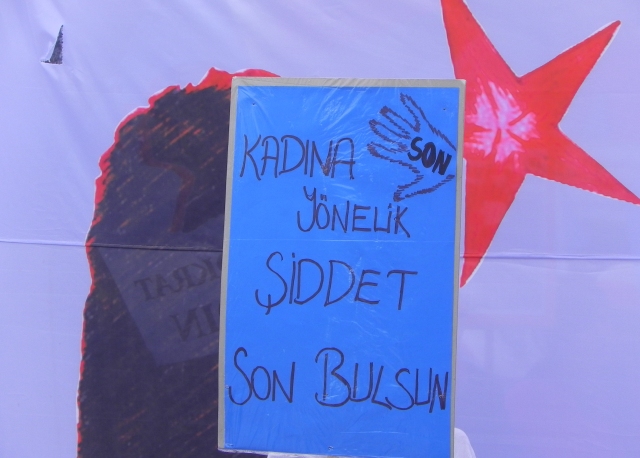 KADINA
SON
YÖNELİK
ŞİDDET
SON BULSUN